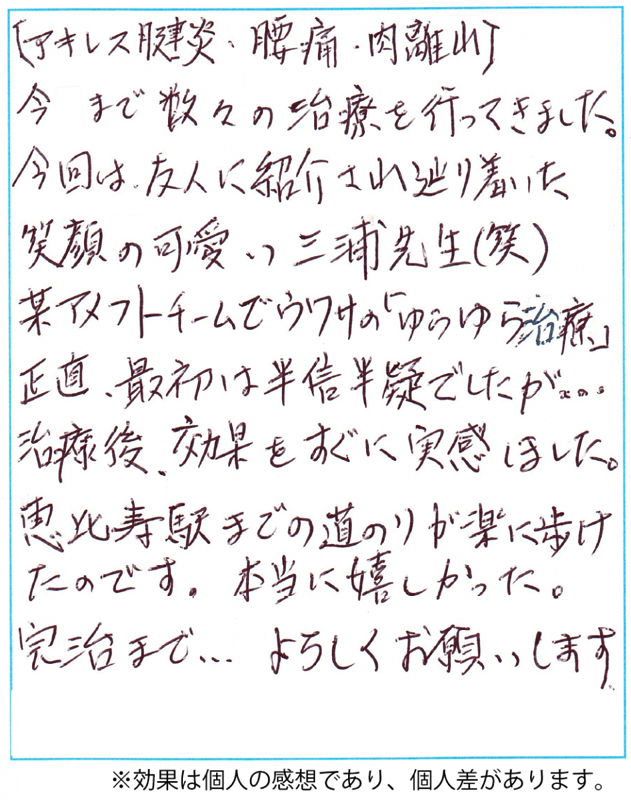 [アキレス腱炎・腰痛・肉離れ]
今まで数々の治療を行ってきました。
今回は、友人に紹介され辿り着いた
笑顔の可愛い三浦先生(笑)
某アメフトチームでウワサの「ゆらゆら治療」
正直、最初は半信半疑でしたが…
治療後、効果をすぐに実感しました。
恵比寿駅までの道のりが楽に歩け
たのです。本当に嬉しかった。
完治まで… よろしくお願いします
※効果は個人の感想であり、個人差があります。